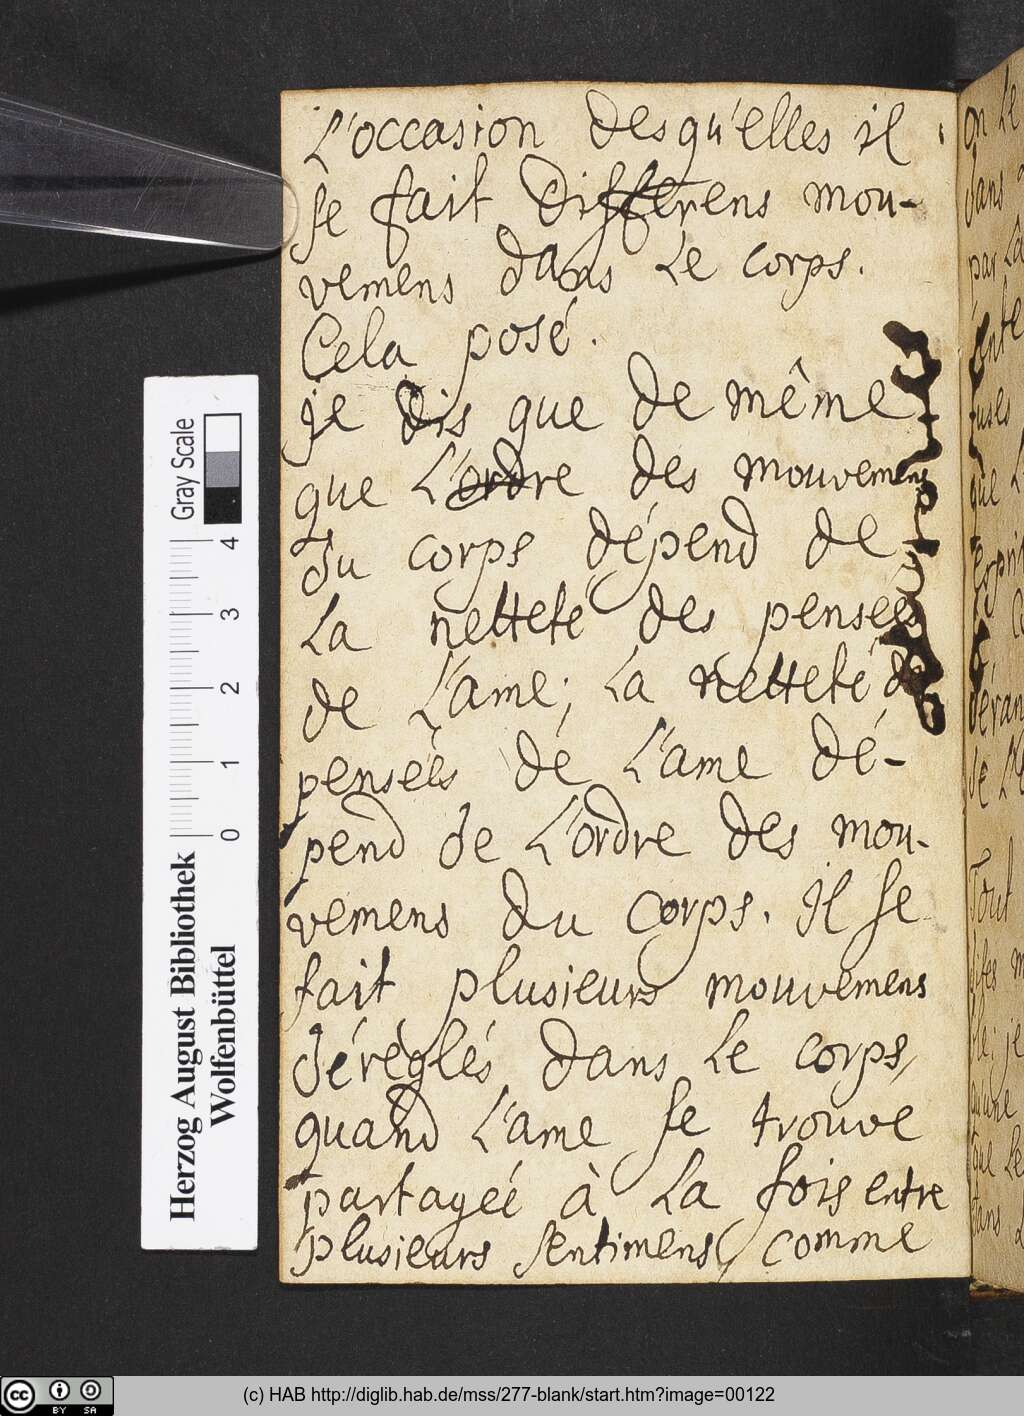 L'occasion desqu'elles il
se fait differens mou-
vemens dans Le corps.
Cela posé.
je dis que de même
que L'ordre des mouvemens
du corps dépend de
La netteté des penseés
de L'ame; La netteté de
penseés dé L'ame dé-
pend de L'ordre des mou-
vemens du corps. Il se
fait plusieurs mouvemens
déréglés dans Le corps,
quand L'ame se trouve
partageé à La fois entre
plusieurs sentimens, comme
on Le
dans
par La
que
Tout
Gray Scale
0 1 2 3 4
Herzog August Bibliothek
Wolfenbüttel
cc BY SA
(c) HAB http://diglib.hab.de/mss/277-blank/start.htm?image=00122